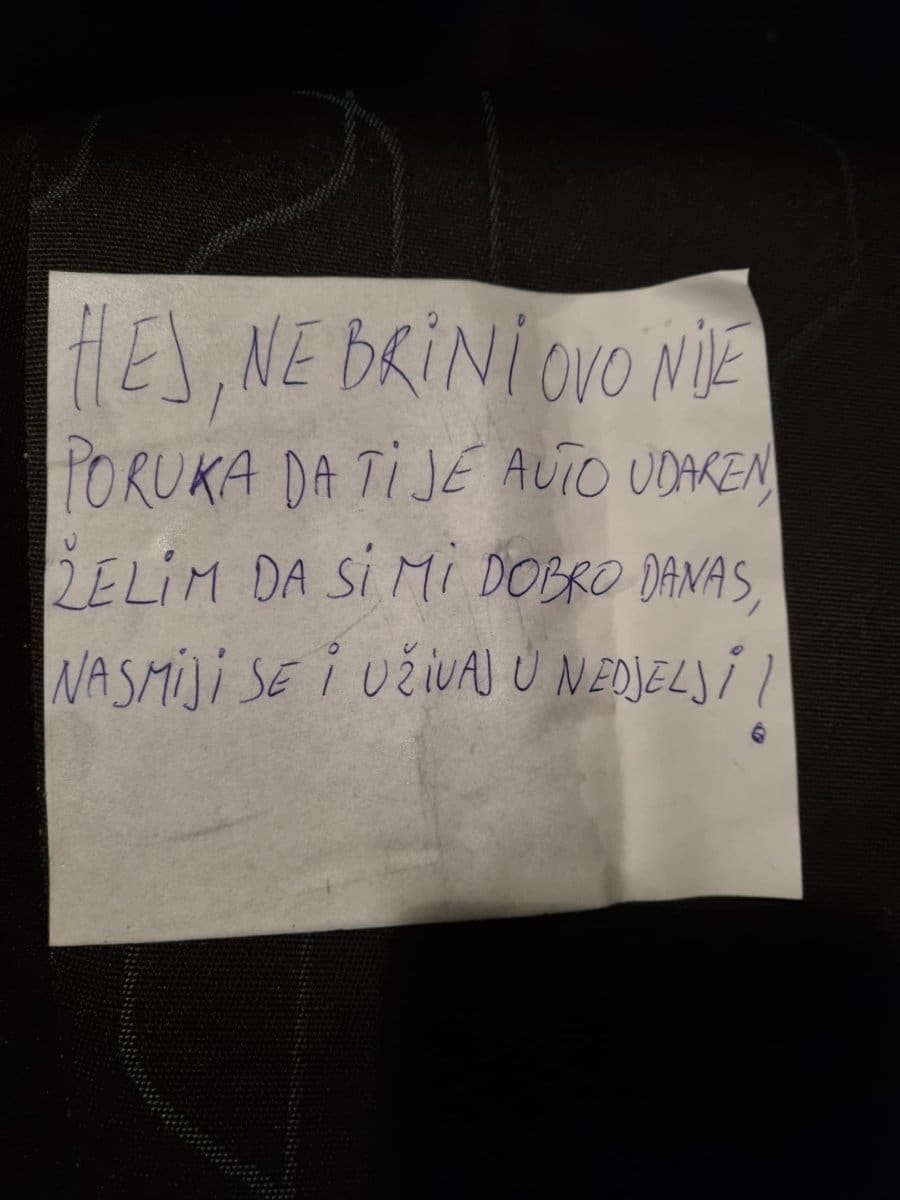 HEJ, NE BRINI OVO NIJE
PORUKA DA TI JE AUTO UDAREN,
ŽELIM DA SI MI DOBRO DANAS,
NASMIJI SE I UŽIVAJ U NEDJELJI!